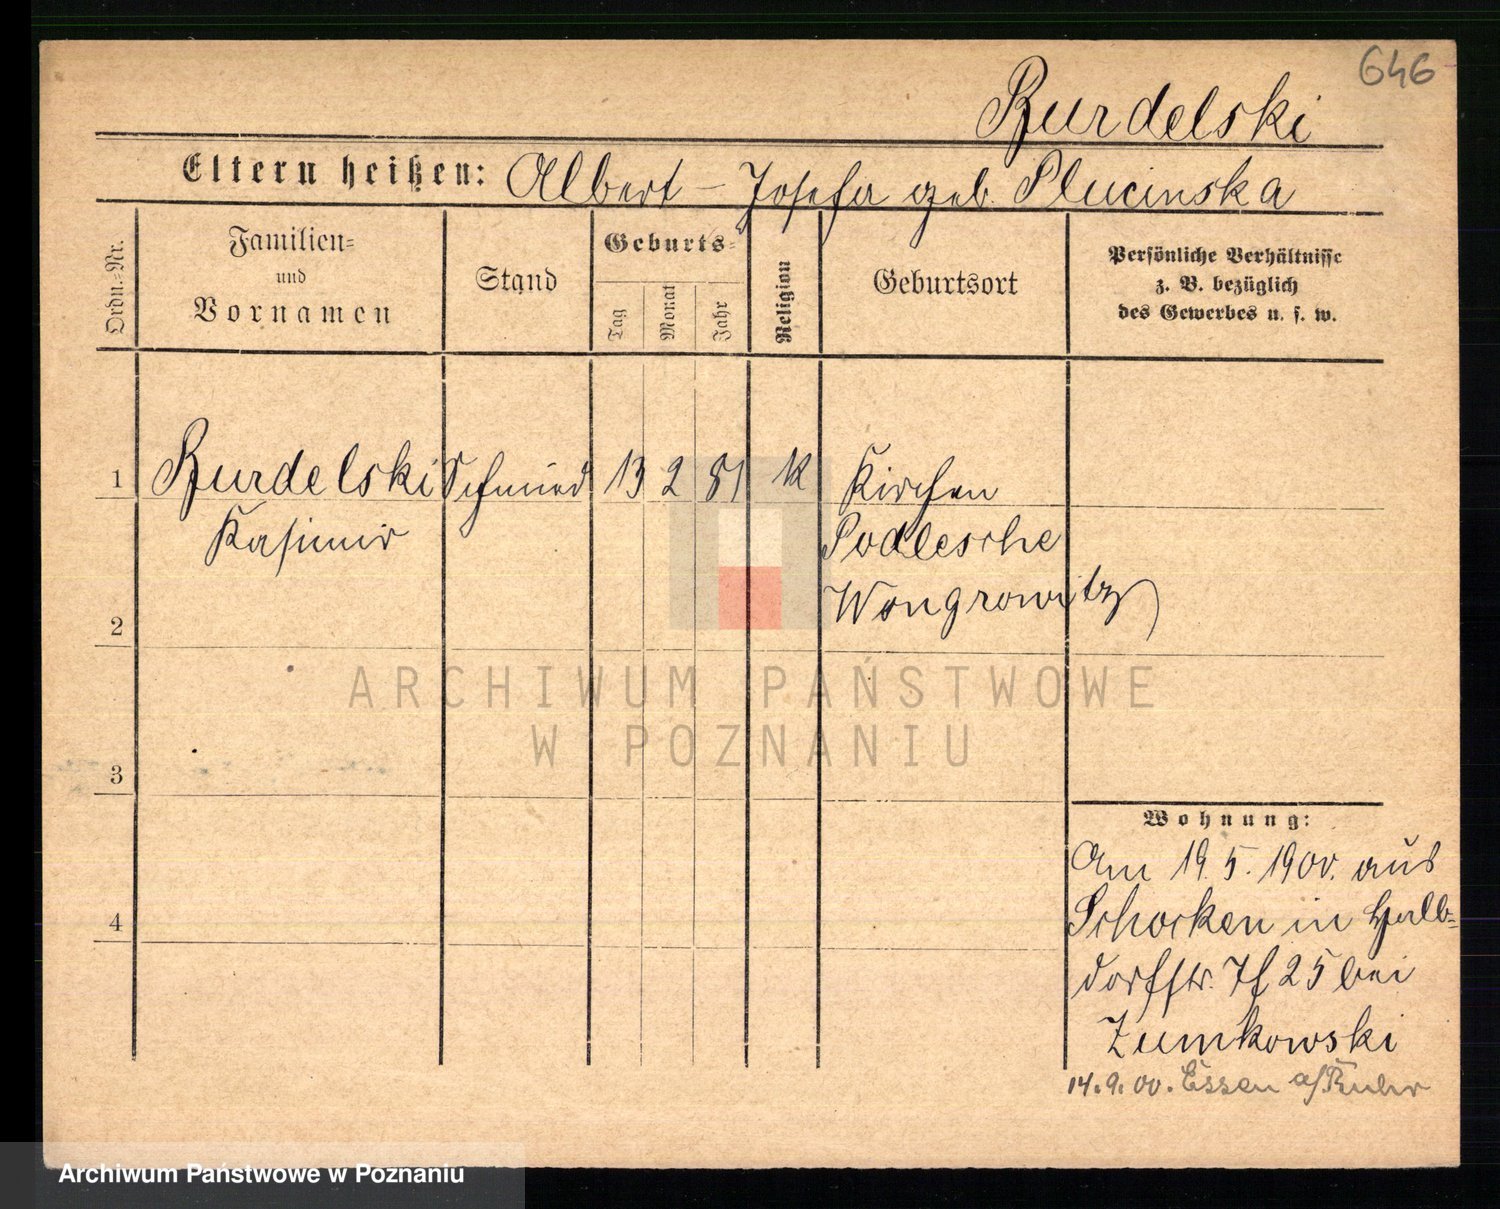 646
Burdelski
Eltern heißen: Albert – Josefa geb. Plucinska
Ordn.-Nr.
Familien-
und
Vornamen
Stand
Geburts-
Tag
Monat
Jahr
Religion
Geburtsort
Persönliche Verhältnisse
z. B. bezüglich
des Gewerbes u. s. w.
1 Burdelski Schmied 13 2 81 k Kirchen
Kasimir Podlesche
Wongrowitz
2
3
4
ARCHIWUM PAŃSTWOWE
W POZNANIU
Wohnung:
Am 19. 5. 1900. aus
Schocken in Halb-
dorfstr. 25 bei
Zumkowski
14. 9. 00. Essen a/Ruhr
Archiwum Państwowe w Poznaniu